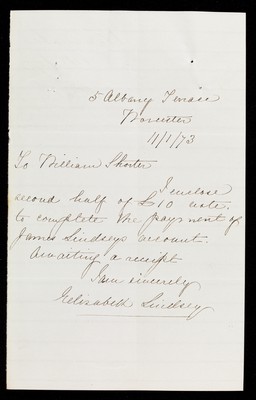 5 Albany Terrace
Worcester
11/1/73
To William Shorter
I enclose
second half of £10 note.
to complete the payment of
James Lindseys account.
Awaiting a receipt
I am sincerely
Elizabeth Lindsey